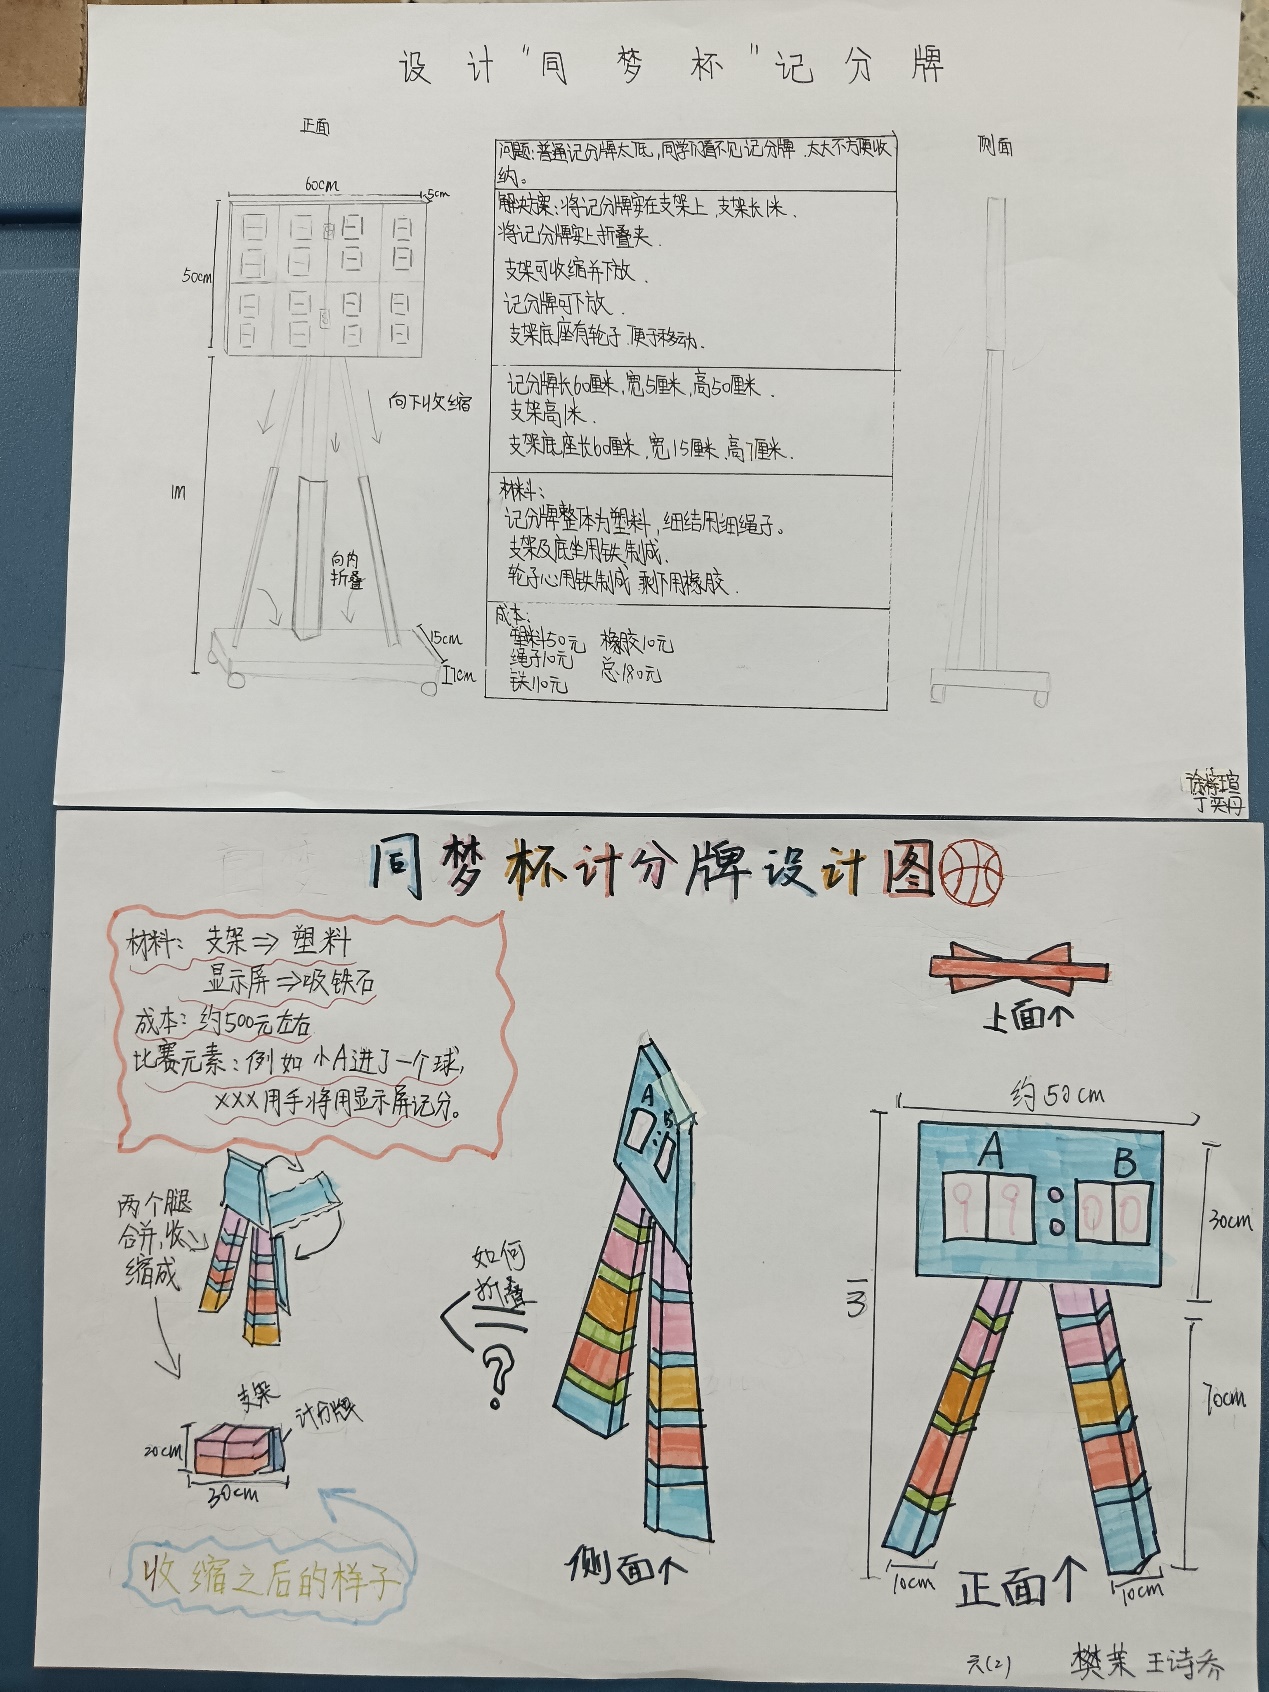 设计"同梦杯"记分牌
正面
侧面
60cm
5cm
50cm
1M
向下收缩
向内
折叠
15cm
7cm
问题:普通记分牌太低,同学们看不见记分牌、太大不方便收
纳。
解决方案:将记分牌安在支架上,支架长1米、
将记分牌安上折叠夹、
支架可收缩并下放、
记分牌可下放、
支架底座有轮子、便于移动、
记分牌长60厘米,宽5厘米,高50厘米、
支架高1米、
支架底座长60厘米、宽15厘米、高7厘米、
材料:
记分牌整体为塑料,细结用细绳子。
支架及底坐用铁制成、
轮子心用铁制成、剩下用橡胶、
成本:
塑料50元 橡胶10元
绳子10元 总:180元
铁110元
丁奕丹
同梦杯计分牌设计图
材料: 支架⇒塑料
显示屏⇒吸铁石
成本:约500元左右
比赛元素:例如小A进了一个球,
×××用手将用显示屏记分。
上面个
约50cm
A B
99:00
30cm
1m
70cm
10cm
10cm
正面个
A
B
侧面个
如何
折叠
?
两个腿
合并,收
缩成
支架
计分牌
20cm
30cm
收缩之后的样子
六(2) 樊茉 王诗乔